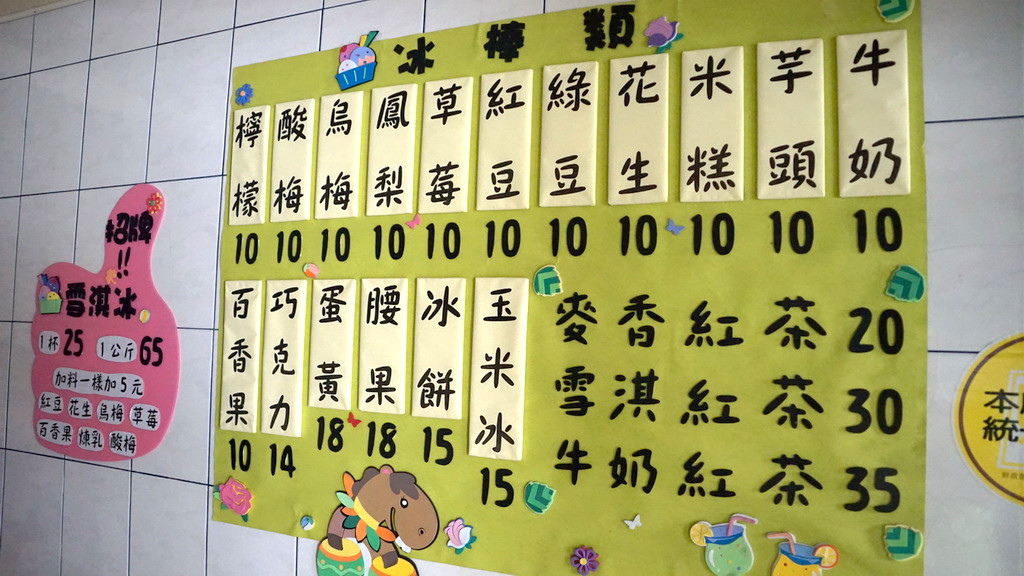 冰棒類
檸檬 10
酸梅 10
烏梅 10
鳳梨 10
草莓 10
紅豆 10
綠豆 10
花生 10
米糕 10
芋頭 10
牛奶 10
百香果 10
巧克力 14
蛋黃 18
腰果 18
冰餅 15
玉米冰 15
麥香紅茶 20
雪淇紅茶 30
牛奶紅茶 35
招牌!!
雪淇冰
1杯25 1公斤65
加料一樣加5元
紅豆 花生 烏梅 草莓
百香果 煉乳 酸梅
本
統